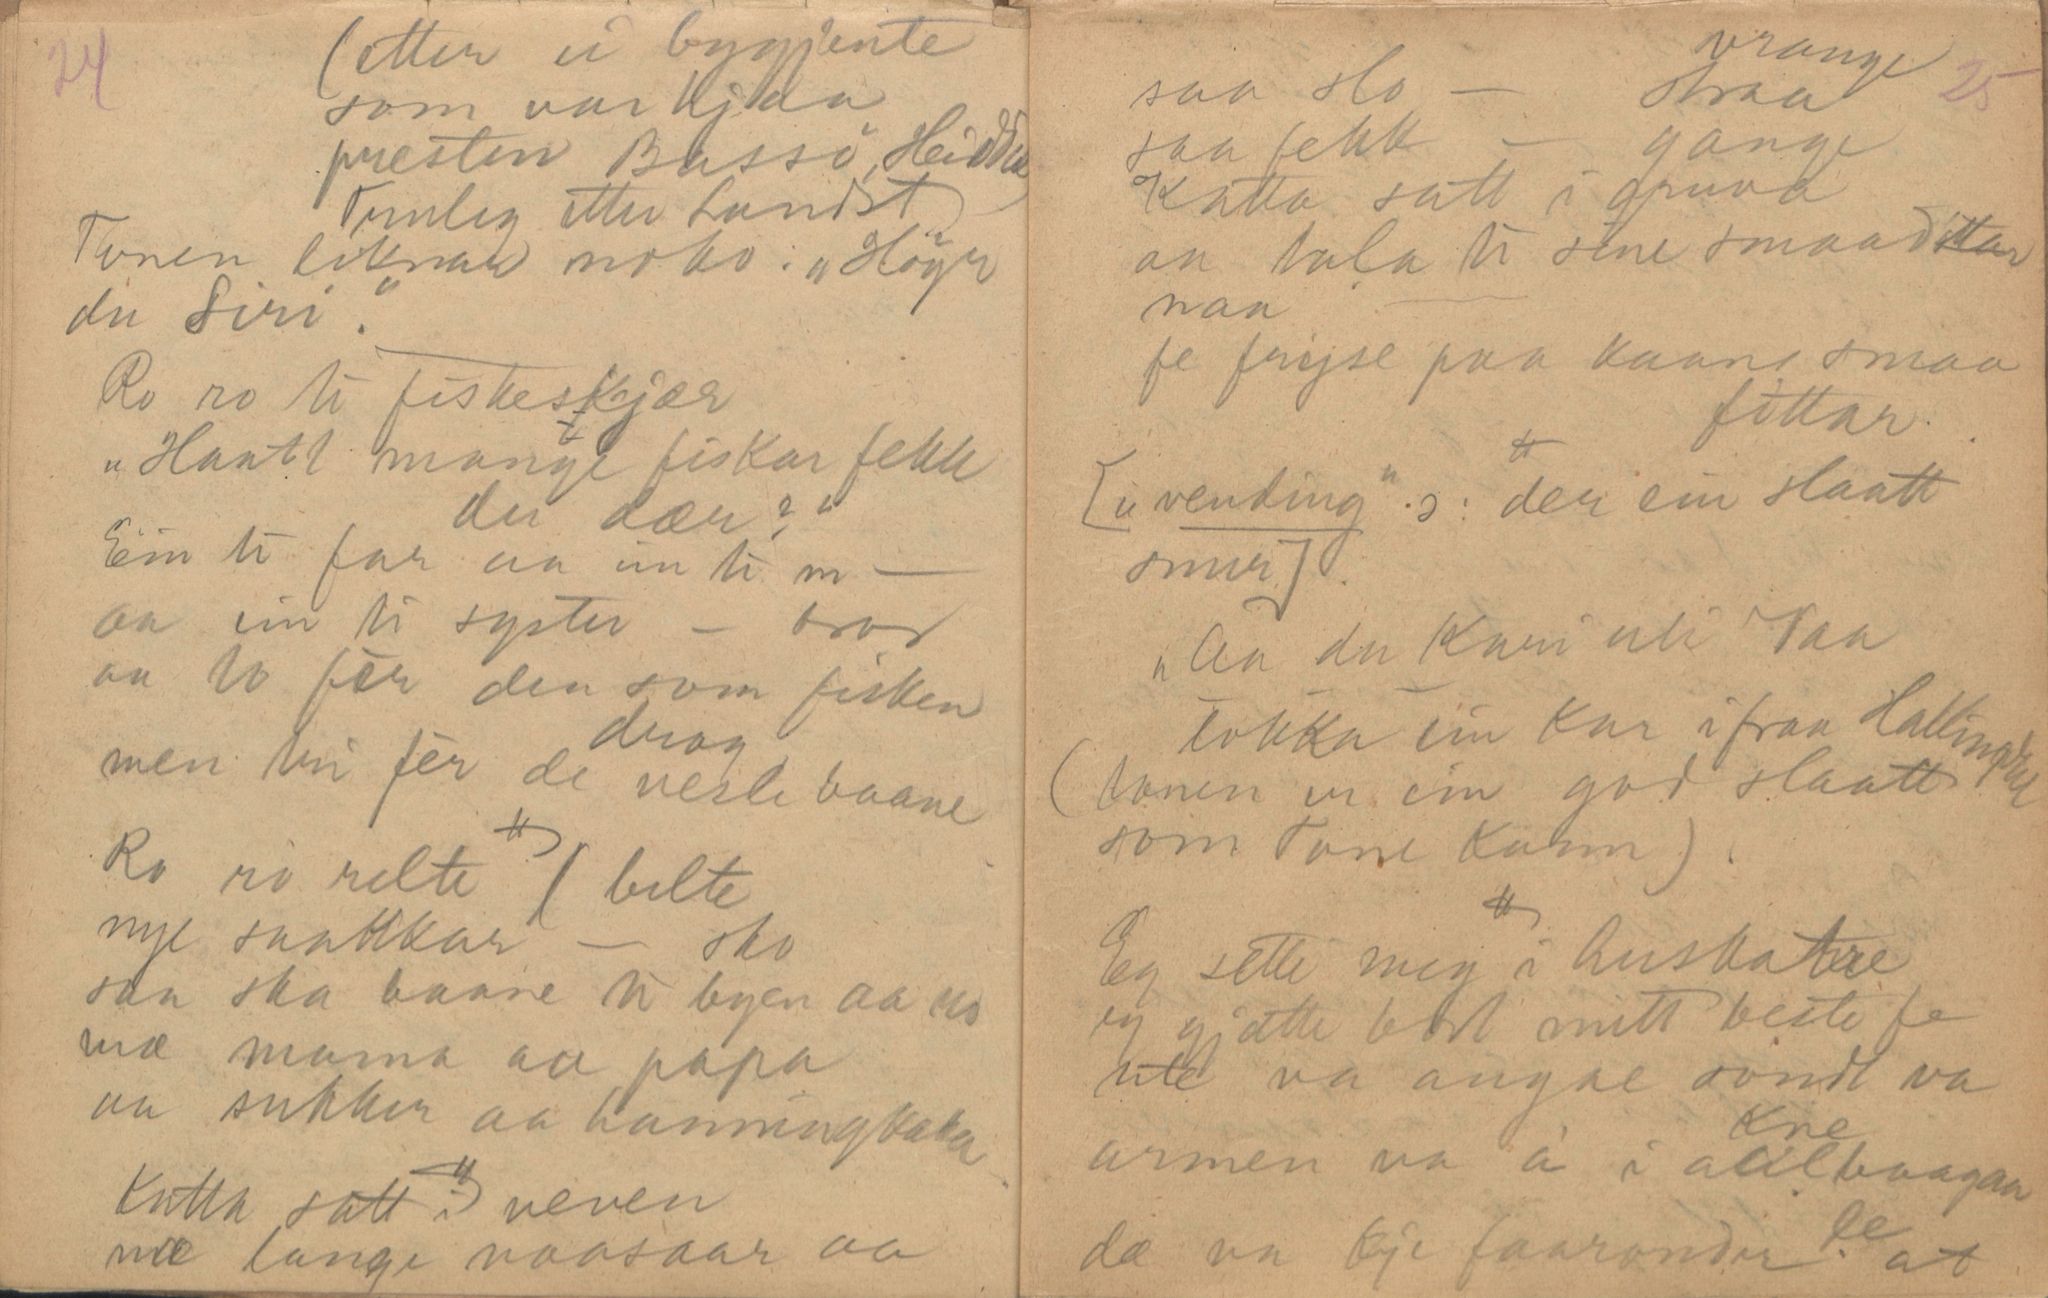 24
(etter ei bygjente
som var hjaa
presten Bassö, Heiddal
Truleg etter Landst)
Tonen liknar noko: „Höyr
du Siri".
Ro ro ti fiskeskjær
„Haatt mange fiskar fekk
du dær?"
Ein ti far aa ein ti m —
aa ein ti syster — bror
aa to fer den som fisken
drog
men tri fer de vesle baane
Ro ro relte (belte
nye saakkar — sko
saa ska baane ti byen aa ro
mæ mama aa papa
aa sukker aa hanningkaka
Katta satt i veven
mæ lange
25
vrange
saa slo — straa
saa fekk — gange
Katta satt i gruva
aa tala ti sine smaadittar
naa
fe fryse paa kaans smaa
fittar.
[„vending" ɔ: der ein slaatt
snur].
„Aa du Kari uti Taa
lokka ein kar ifraa Hallingdal
(tonen er ein god slaatt
som Tone kann).
Eg sette meg i huskatre
eg gjætte bort mitt beste fe
ute va augae vondt va
kne
armen va å i albaagaa
dæ va kje faaronder
at